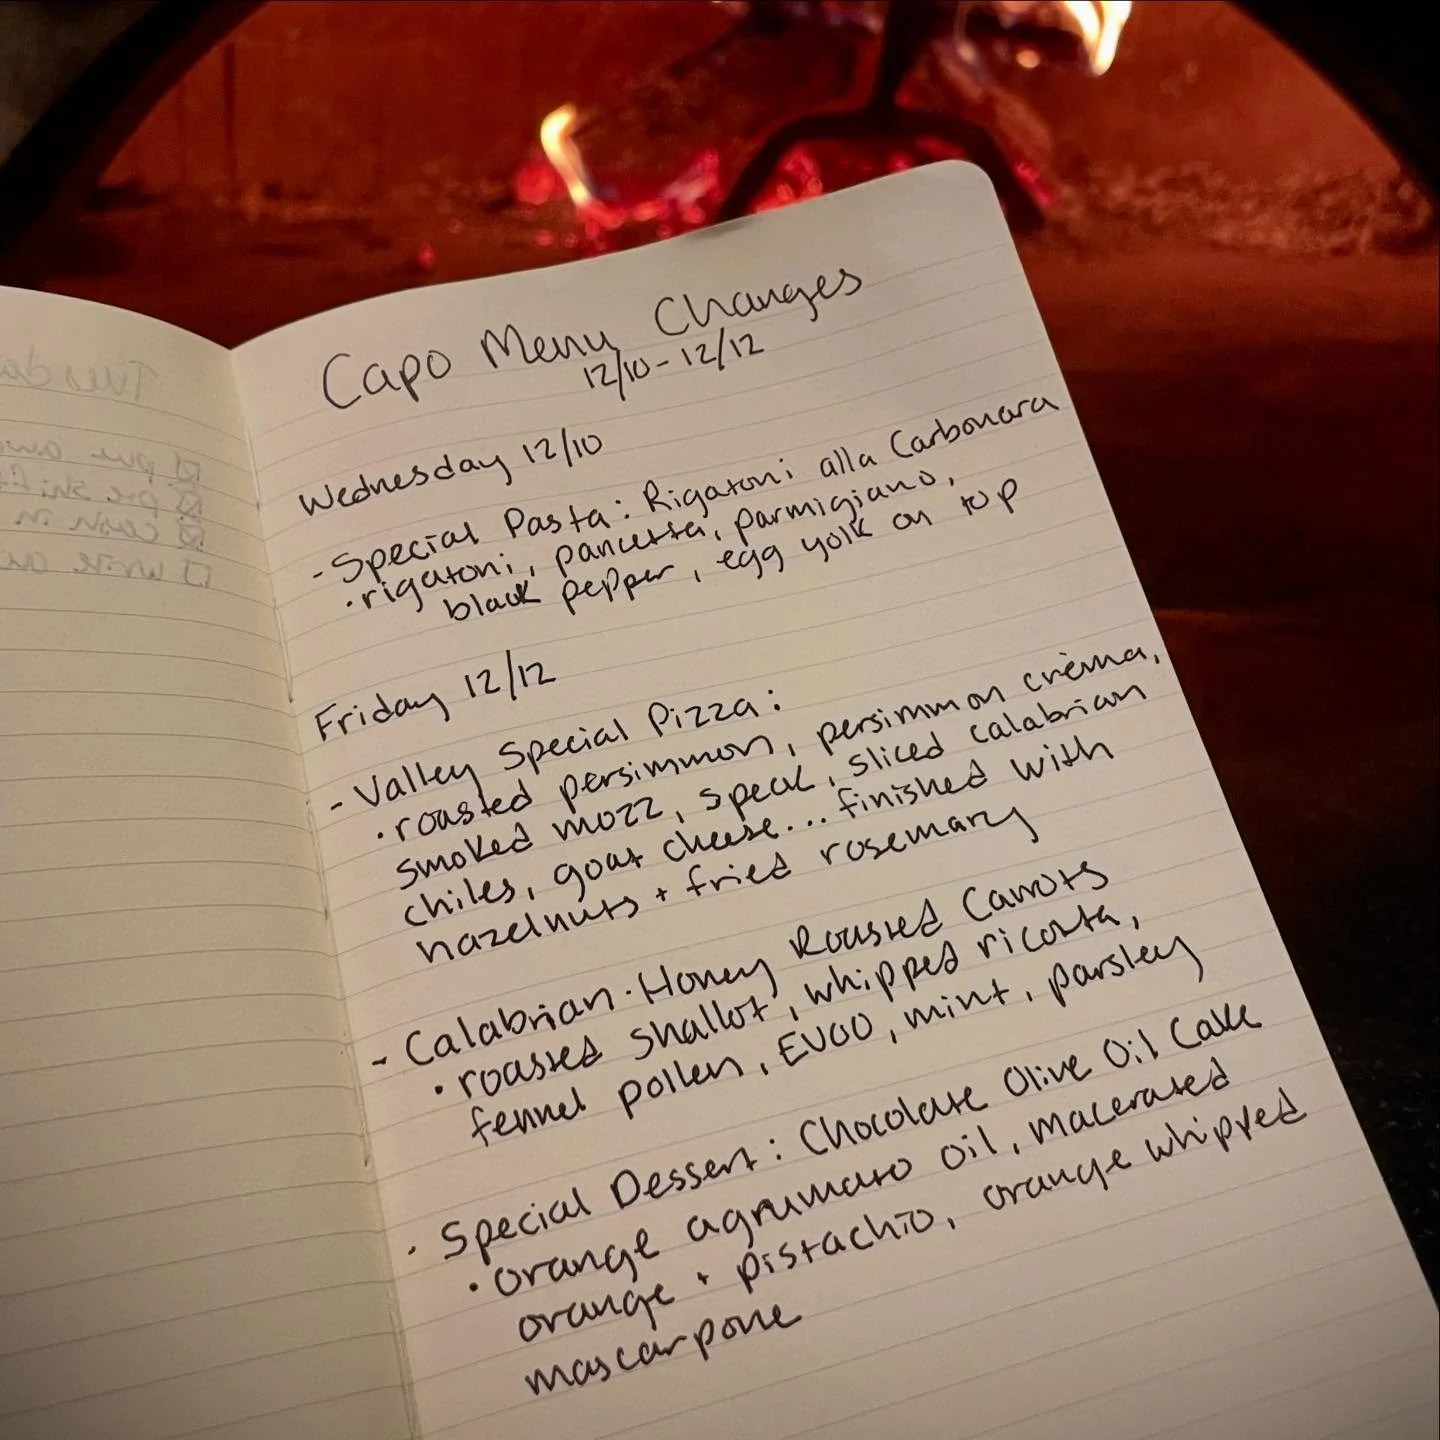 Capo Menu Changes
12/10 - 12/12
Wednesday 12/10
- Special Pasta: Rigatoni alla Carbonara
• rigatoni, pancetta, parmigiano,
black pepper, egg yolk on top
Friday 12/12
- Valley Special Pizza:
• roasted persimmon, persimmon crèma,
smoked mozz, speck, sliced calabrian
chiles, goat cheese... finished with
hazelnuts + fried rosemary
- Calabrian-Honey Roasted Carrots
• roasted shallot, whipped ricotta,
fennel pollen, EVOO, mint, parsley
- Special Dessert: Chocolate Olive Oil Cake
• orange agrumato oil, macerated
orange + pistachio, orange whipped
mascarpone